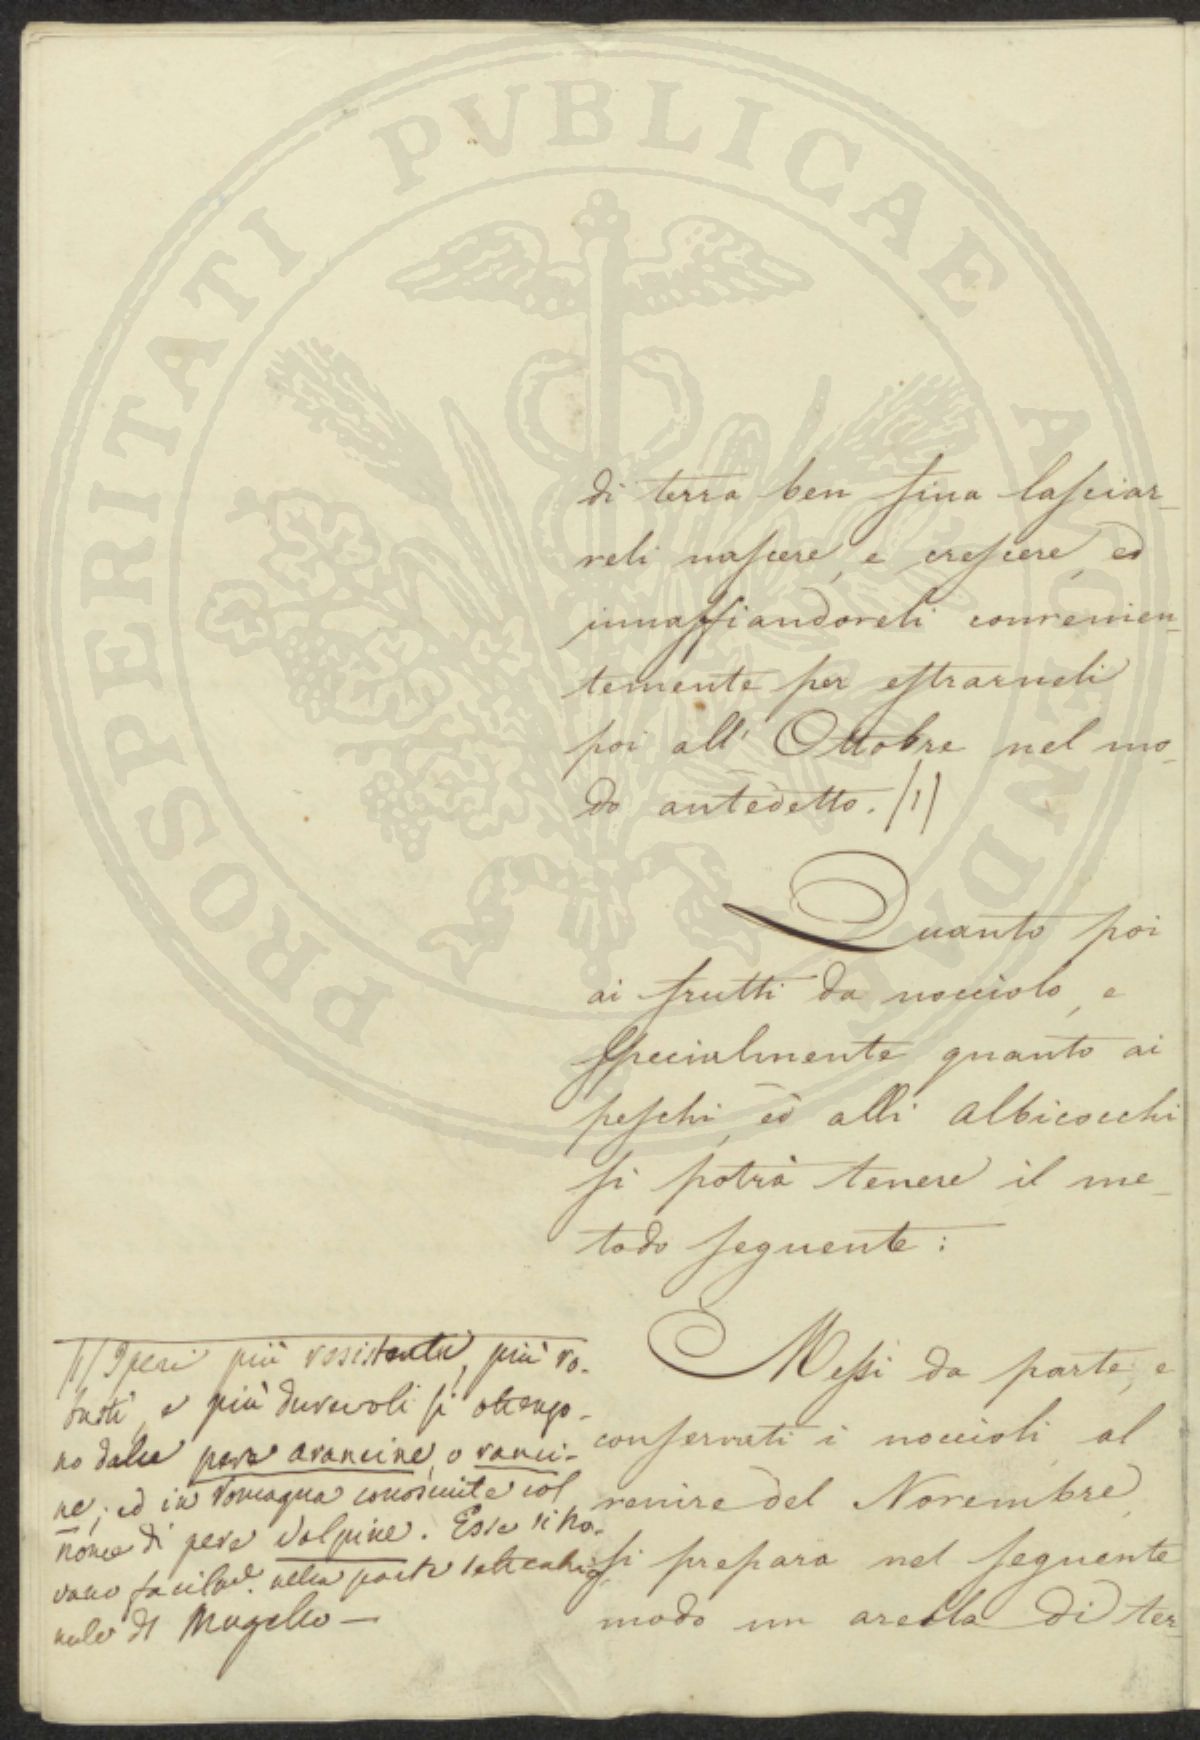 PROSPERITATI PVBLICAE AVGENDAE
di terra ben fina lasciar-
veli nascere, e crescere, ed
innaffiandoveli convenien-
temente per estrarneli
poi all' Ottobre nel mo-
do antedetto. (1)
Quanto poi
ai frutti da nocciolo, e
specialmente quanto ai
peschi, ed alli albicocchi
si potrà tenere il me-
todo seguente:
Messi da parte, e
conservati i noccioli, al
venire del Novembre,
si prepara nel seguente
modo un areola di ter-
(1) I peri più resistenti, più ro-
busti, e più durevoli si ottengo-
no dalle pere arancine, o ranci-
ne; ed in Romagna conosciute col
nome di pere Volpine. Esse si tro-
vano facilme. nella parte settentrio-
nale di Mugello —